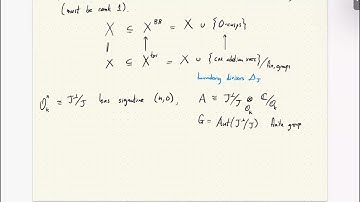 (must be rank 1).
X ⊆ X^BB = X ∪ {0-cusps}
X ⊆ X^tor = X ∪ {cox abelian vars} / fin. groups
boundary divisors Δ_J
J^⊥/J has signature (n,0), A ≅ J^⊥/J ⊗ C/O_k
G = Aut(J^⊥/J) finite group